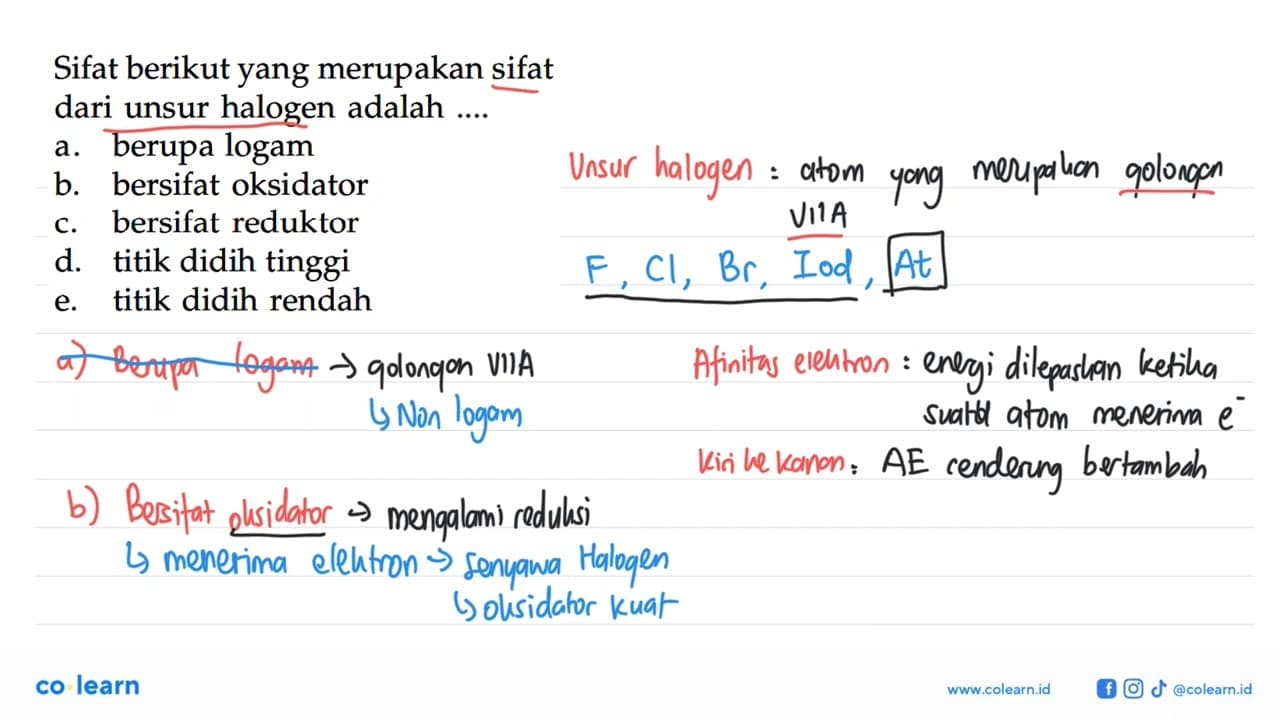 Sifat berikut yang merupakan sifat
dari unsur halogen adalah ....
a. berupa logam
b. bersifat oksidator
c. bersifat reduktor
d. titik didih tinggi
e. titik didih rendah
Unsur halogen : atom yang merupakan golongan
VIIA
F, Cl, Br, Iod, At
a) Berupa logam → golongan VIIA
↳ Non logam
b) Bersifat oksidator → mengalami reduksi
↳ menerima elektron → senyawa Halogen
↳ oksidator kuat
Afinitas elektron : energi dilepaskan ketika
suatu atom menerima e⁻
Kiri ke kanan : AE cenderung bertambah
co learn
www.colearn.id
@colearn.id